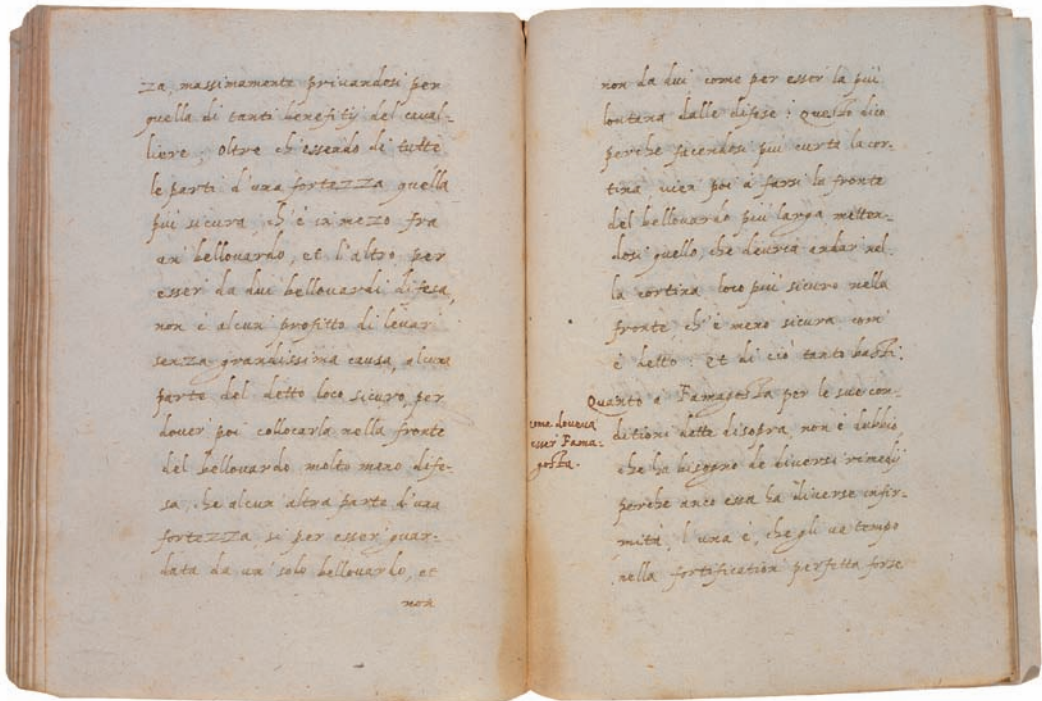 za, massimamente priuandosi per
quella di tanti benefitij del caual-
liere, oltre ch'essendo di tutte
le parti d'una fortezza quella
piu sicura, ch'è in mezo fra
un bellouardo, et l'altro per
esser da dui bellouardi difesa,
non è alcun profitto di leuar
senza grandissima causa, alcuna
parte del detto loco sicuro, per
douer poi collocarla nella fronte
del bellouardo molto meno dife-
sa, che alcun altra parte d'una
fortezza si per esser guar-
data da un solo bellouardo, et
non
non da dui come per esser la piu
lontana dalle difese: questo dico
perche facendosi piu curta la cor-
tina vien poi a farsi la fronte
del bellouardo piu larga metten-
dosi quello, che deuria andar nel-
la cortina loco piu sicuro nella
fronte ch'è meno sicura com'
è detto: et di ciò tanto basti.
come doueua
esser Fama-
gosta.
Quanto a Famagosta per le sue con-
ditioni dette disopra, non è dubbio,
che ha bisogno de diuersi remedij
perche anco essa ha diuerse infir-
mità, l'una è, che gli va tempo
nella fortification perfetta forse